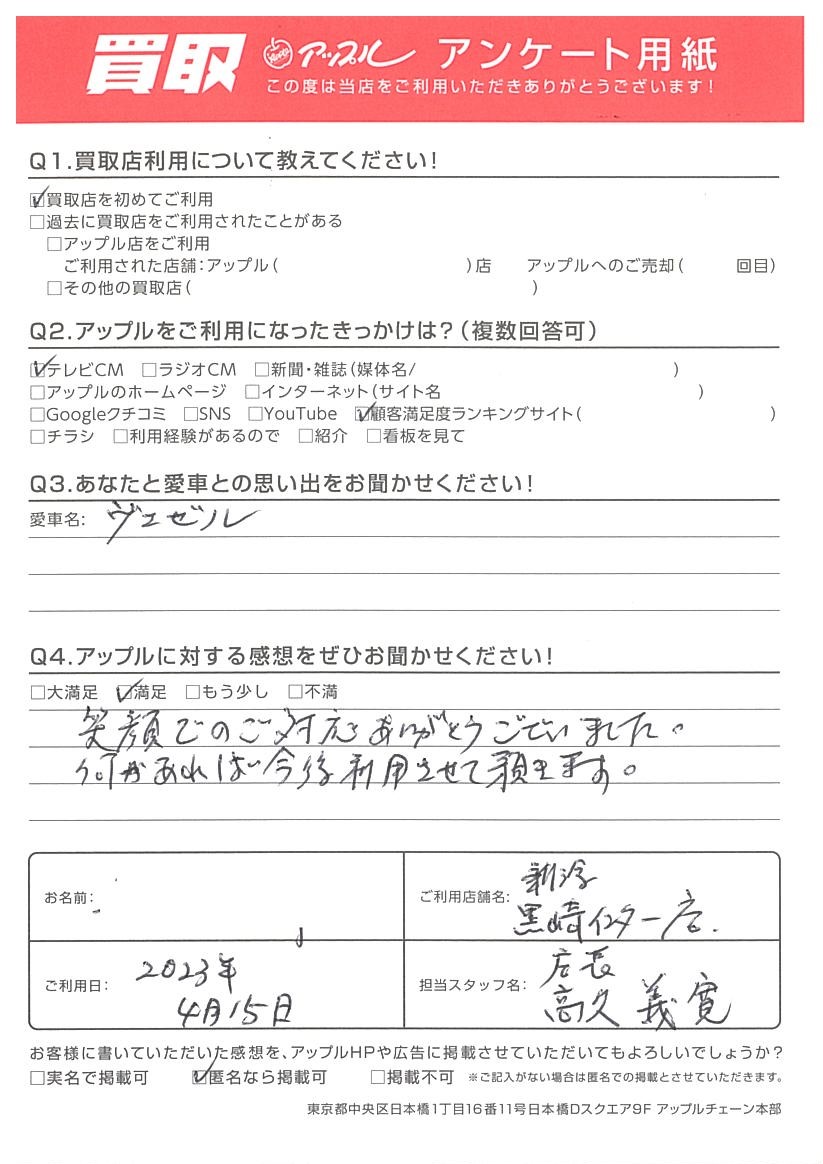 買取 アップル アンケート用紙
この度は当店をご利用いただきありがとうございます！
Q1.買取店利用について教えてください！
☑買取店を初めてご利用
□過去に買取店をご利用されたことがある
□アップル店をご利用
ご利用された店舗：アップル（ ）店 アップルへのご売却（ 回目）
□その他の買取店（ ）
Q2.アップルをご利用になったきっかけは？（複数回答可）
☑テレビCM □ラジオCM □新聞・雑誌（媒体名/ ）
□アップルのホームページ □インターネット（サイト名 ）
□Googleクチコミ □SNS □YouTube ☑顧客満足度ランキングサイト（ ）
□チラシ □利用経験があるので □紹介 □看板を見て
Q3.あなたと愛車との思い出をお聞かせください！
愛車名： ヴェゼル
Q4.アップルに対する感想をぜひお聞かせください！
□大満足 ☑満足 □もう少し □不満
笑顔でのご対応ありがとうございました。
何かあれば今後利用させて頂きます。
お名前：
ご利用店舗名： 新潟
黒崎インター店.
ご利用日： 2023年
4月15日
担当スタッフ名： 店長
高久 義寛
お客様に書いていただいた感想を、アップルHPや広告に掲載させていただいてもよろしいでしょうか？
□実名で掲載可 ☑匿名なら掲載可 □掲載不可 ※ご記入がない場合は匿名での掲載とさせていただきます。
東京都中央区日本橋1丁目16番11号日本橋Dスクエア9F アップルチェーン本部